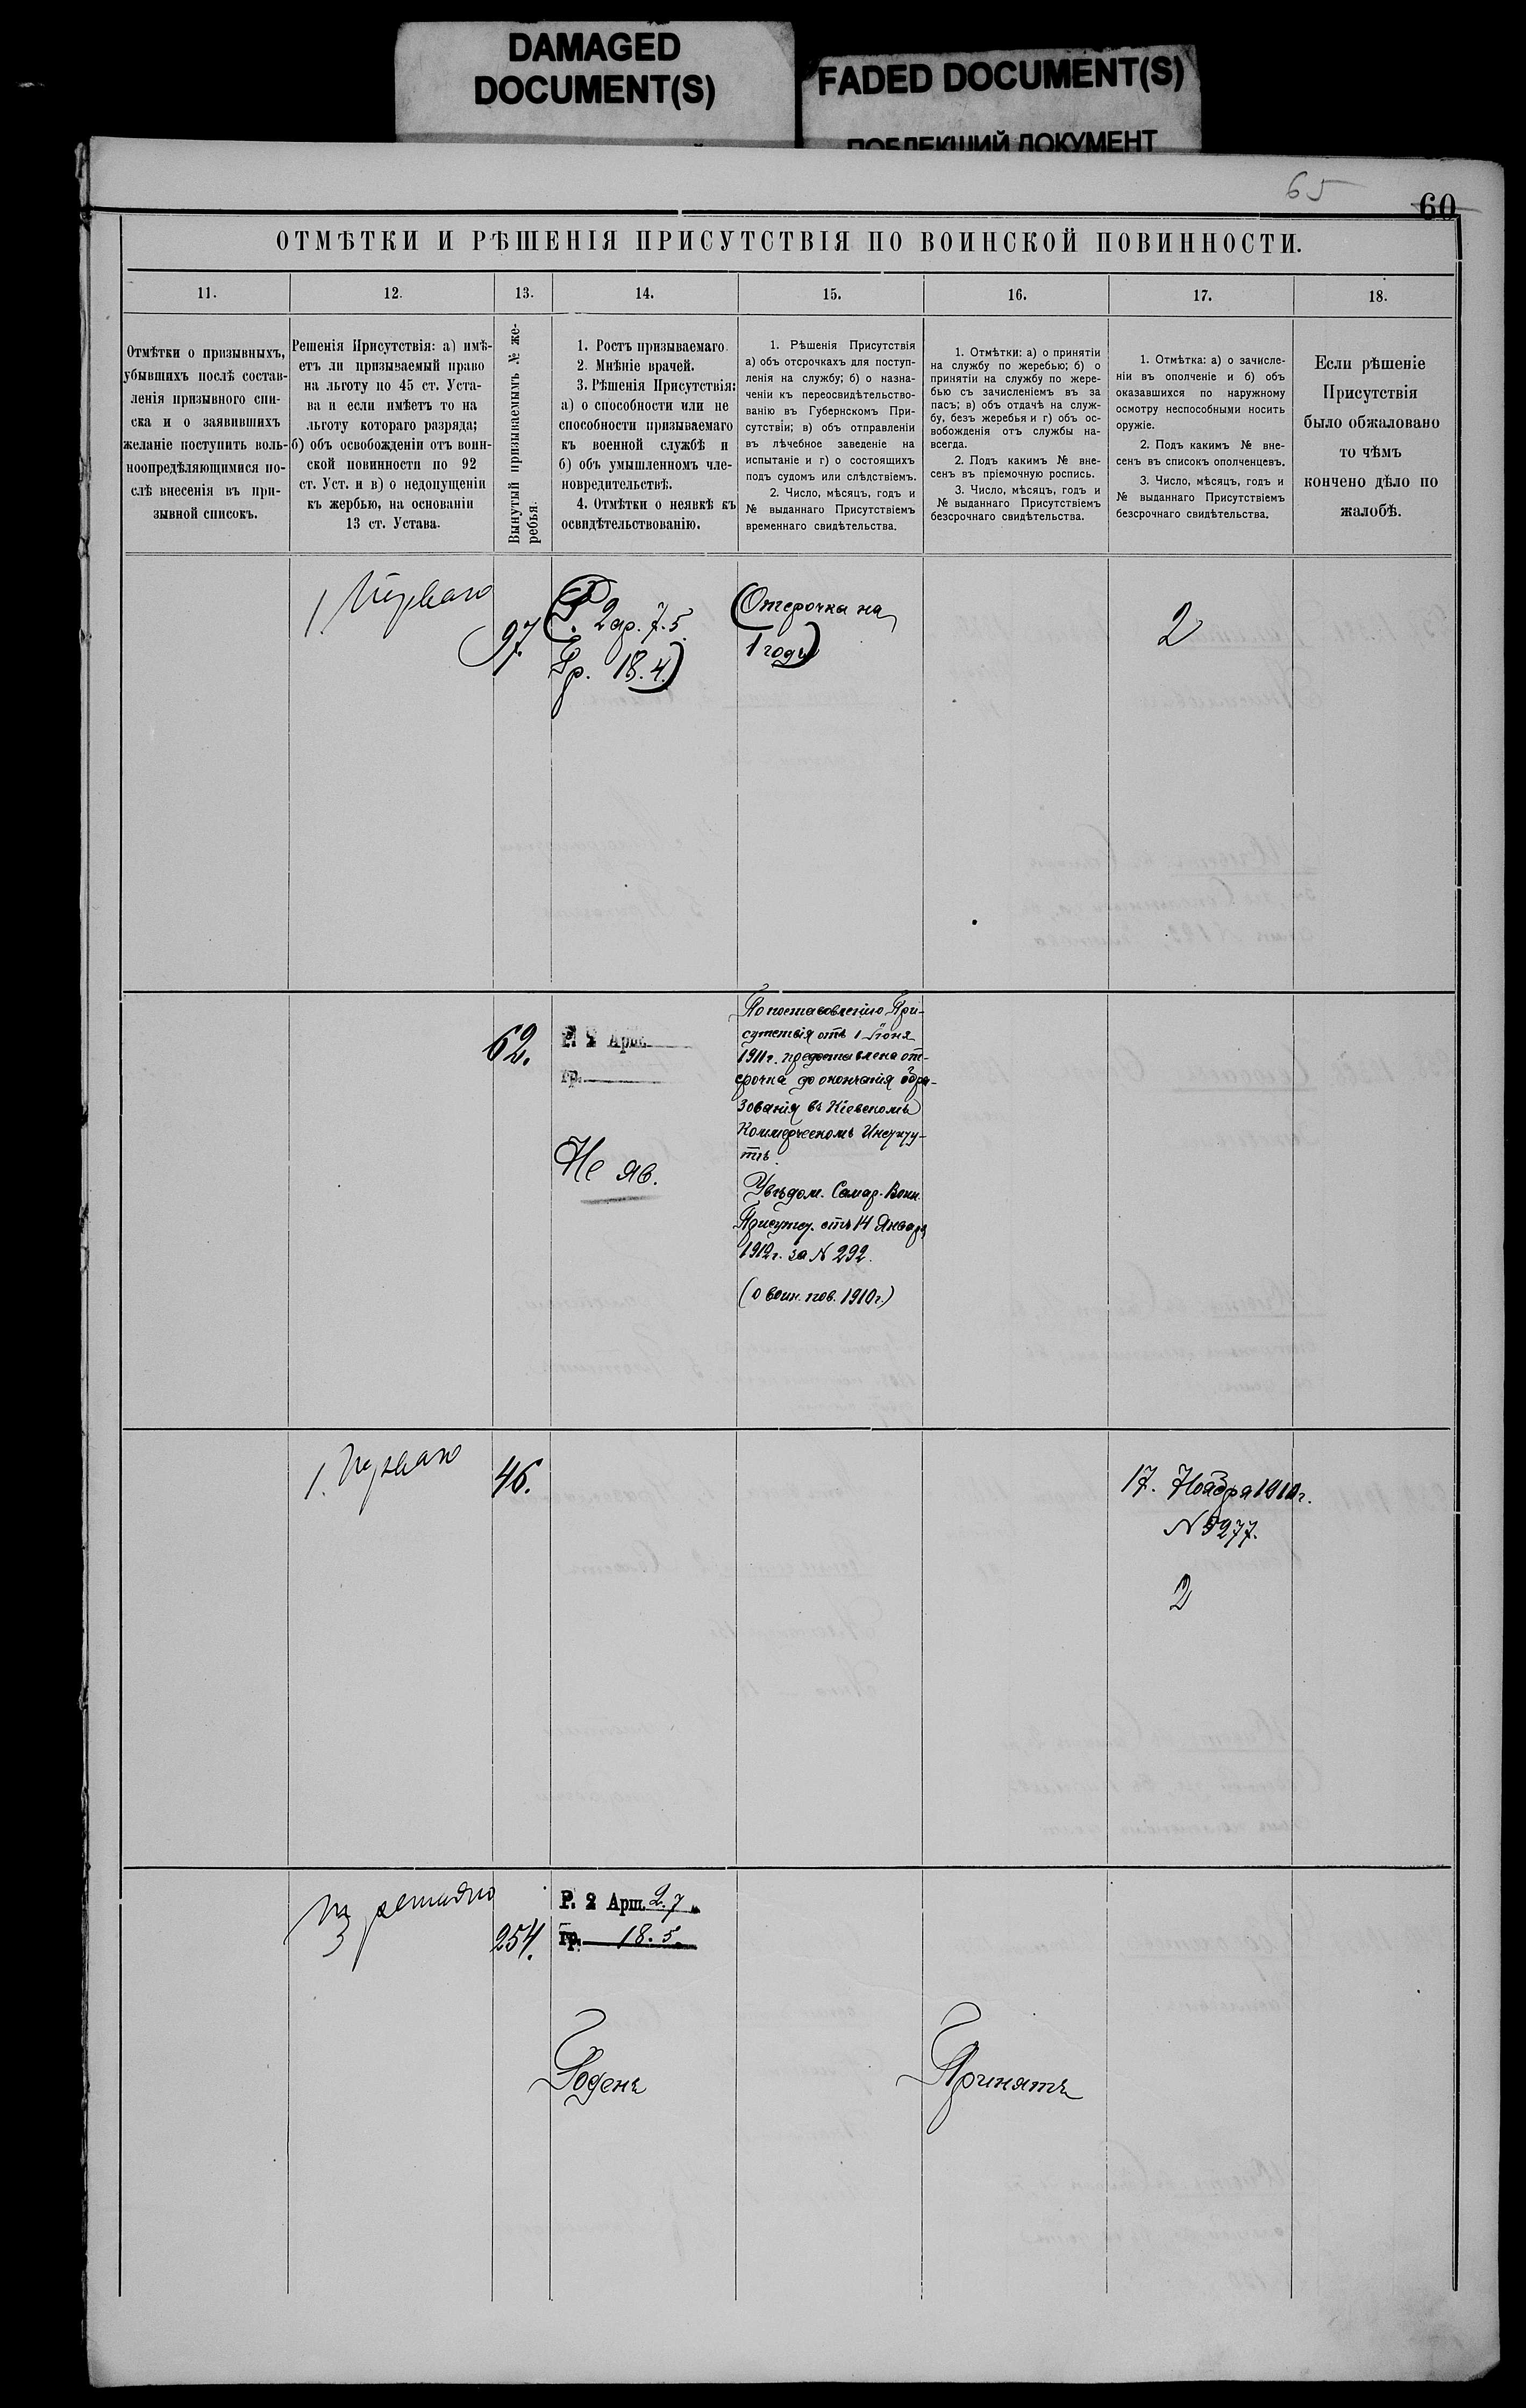 DAMAGED
DOCUMENT(S)
FADED DOCUMENT(S)
ПОБЛЕКШИЙ ДОКУМЕНТ
65
60
ОТМѢТКИ И РѢШЕНІЯ ПРИСУТСТВІЯ ПО ВОИНСКОЙ ПОВИННОСТИ.
11.
12.
13.
14.
15.
16.
17.
18.
Отмѣтки о призывныхъ,
убывшихъ послѣ состав-
ленія призывного спи-
ска и о заявившихъ
желаніе поступить воль-
ноопредѣляющимися по-
слѣ внесенія въ при-
зывной списокъ.
Решенія Присутствія: а) имѣ-
етъ ли призываемый право
на льготу по 45 ст. Уста-
ва и если имѣетъ то на
льготу котораго разряда;
б) объ освобожденіи отъ воин-
ской повинности по 92
ст. Уст. и в) о недопущеніи
къ жербью, на основаніи
13 ст. Устава.
Вынутый призываемымъ № же-
ребья.
1. Ростъ призываемаго.
2. Мнѣніе врачей.
3. Рѣшенія Присутствія:
а) о способности или не
способности призываемаго
къ военной службѣ и
б) объ умышленномъ чле-
новредительствѣ.
4. Отмѣтки о неявкѣ къ
освидѣтельствованію.
1. Рѣшенія Присутствія
а) объ отсрочкахъ для поступ-
ленія на службу; б) о назна-
ченіи къ переосвидѣтельство-
ванію въ Губернскомъ При-
сутствіи; в) объ отправленіи
въ лѣчебное заведеніе на
испытаніе и г) о состоящихъ
подъ судомъ или слѣдствіемъ.
2. Число, мѣсяцъ, годъ и
№ выданнаго Присутствіемъ
временнаго свидѣтельства.
1. Отмѣтки: а) о принятіи
на службу по жеребью; б) о
принятіи на службу по жере-
бью съ зачисленіемъ въ за
пасъ; в) объ отдачѣ на служ-
бу, безъ жеребья и г) объ ос-
вобожденія отъ службы на-
всегда.
2. Подъ какимъ № вне-
сенъ въ пріемочную роспись.
3. Число, мѣсяцъ, годъ и
№ выданнаго Присутствіемъ
безсрочнаго свидѣтельства.
1. Отмѣтка: а) о зачисле-
ніи въ ополченіе и б) объ
оказавшихся по наружному
осмотру неспособными носить
оружіе.
2. Подъ какимъ № вне-
сенъ въ списокъ ополченцевъ.
3. Число, мѣсяцъ, годъ и
№ выданнаго Присутствіемъ
безсрочнаго свидѣтельства.
Если рѣшеніе
Присутствія
было обжаловано
то чѣмъ
кончено дѣло по
жалобѣ.
1 Перваго
97.
(Р. 2 ар. 7.5.
Гр. 18.4.)
(Отсрочка на
1 годъ)
2
62.
Р. 2 Арш.
гр.
Не яв.
По постановленію При-
сутствія отъ 1 Іюня
1911 г. предоставлена от-
срочка до окончанія обра-
зованія въ Кіевскомъ
Коммерческомъ Институ-
тѣ.
Увѣдом. Самар. Воин.
Присутст. отъ 14 Января
1912 г. за № 292.
(о воин. пов. 1910 г.)
1. Перваго
46.
17. Ноября 1910 г.
№ 5277.
2
254.
Р. 2 Арш. 2.7
гр. 18.5.
Годенъ
Принятъ